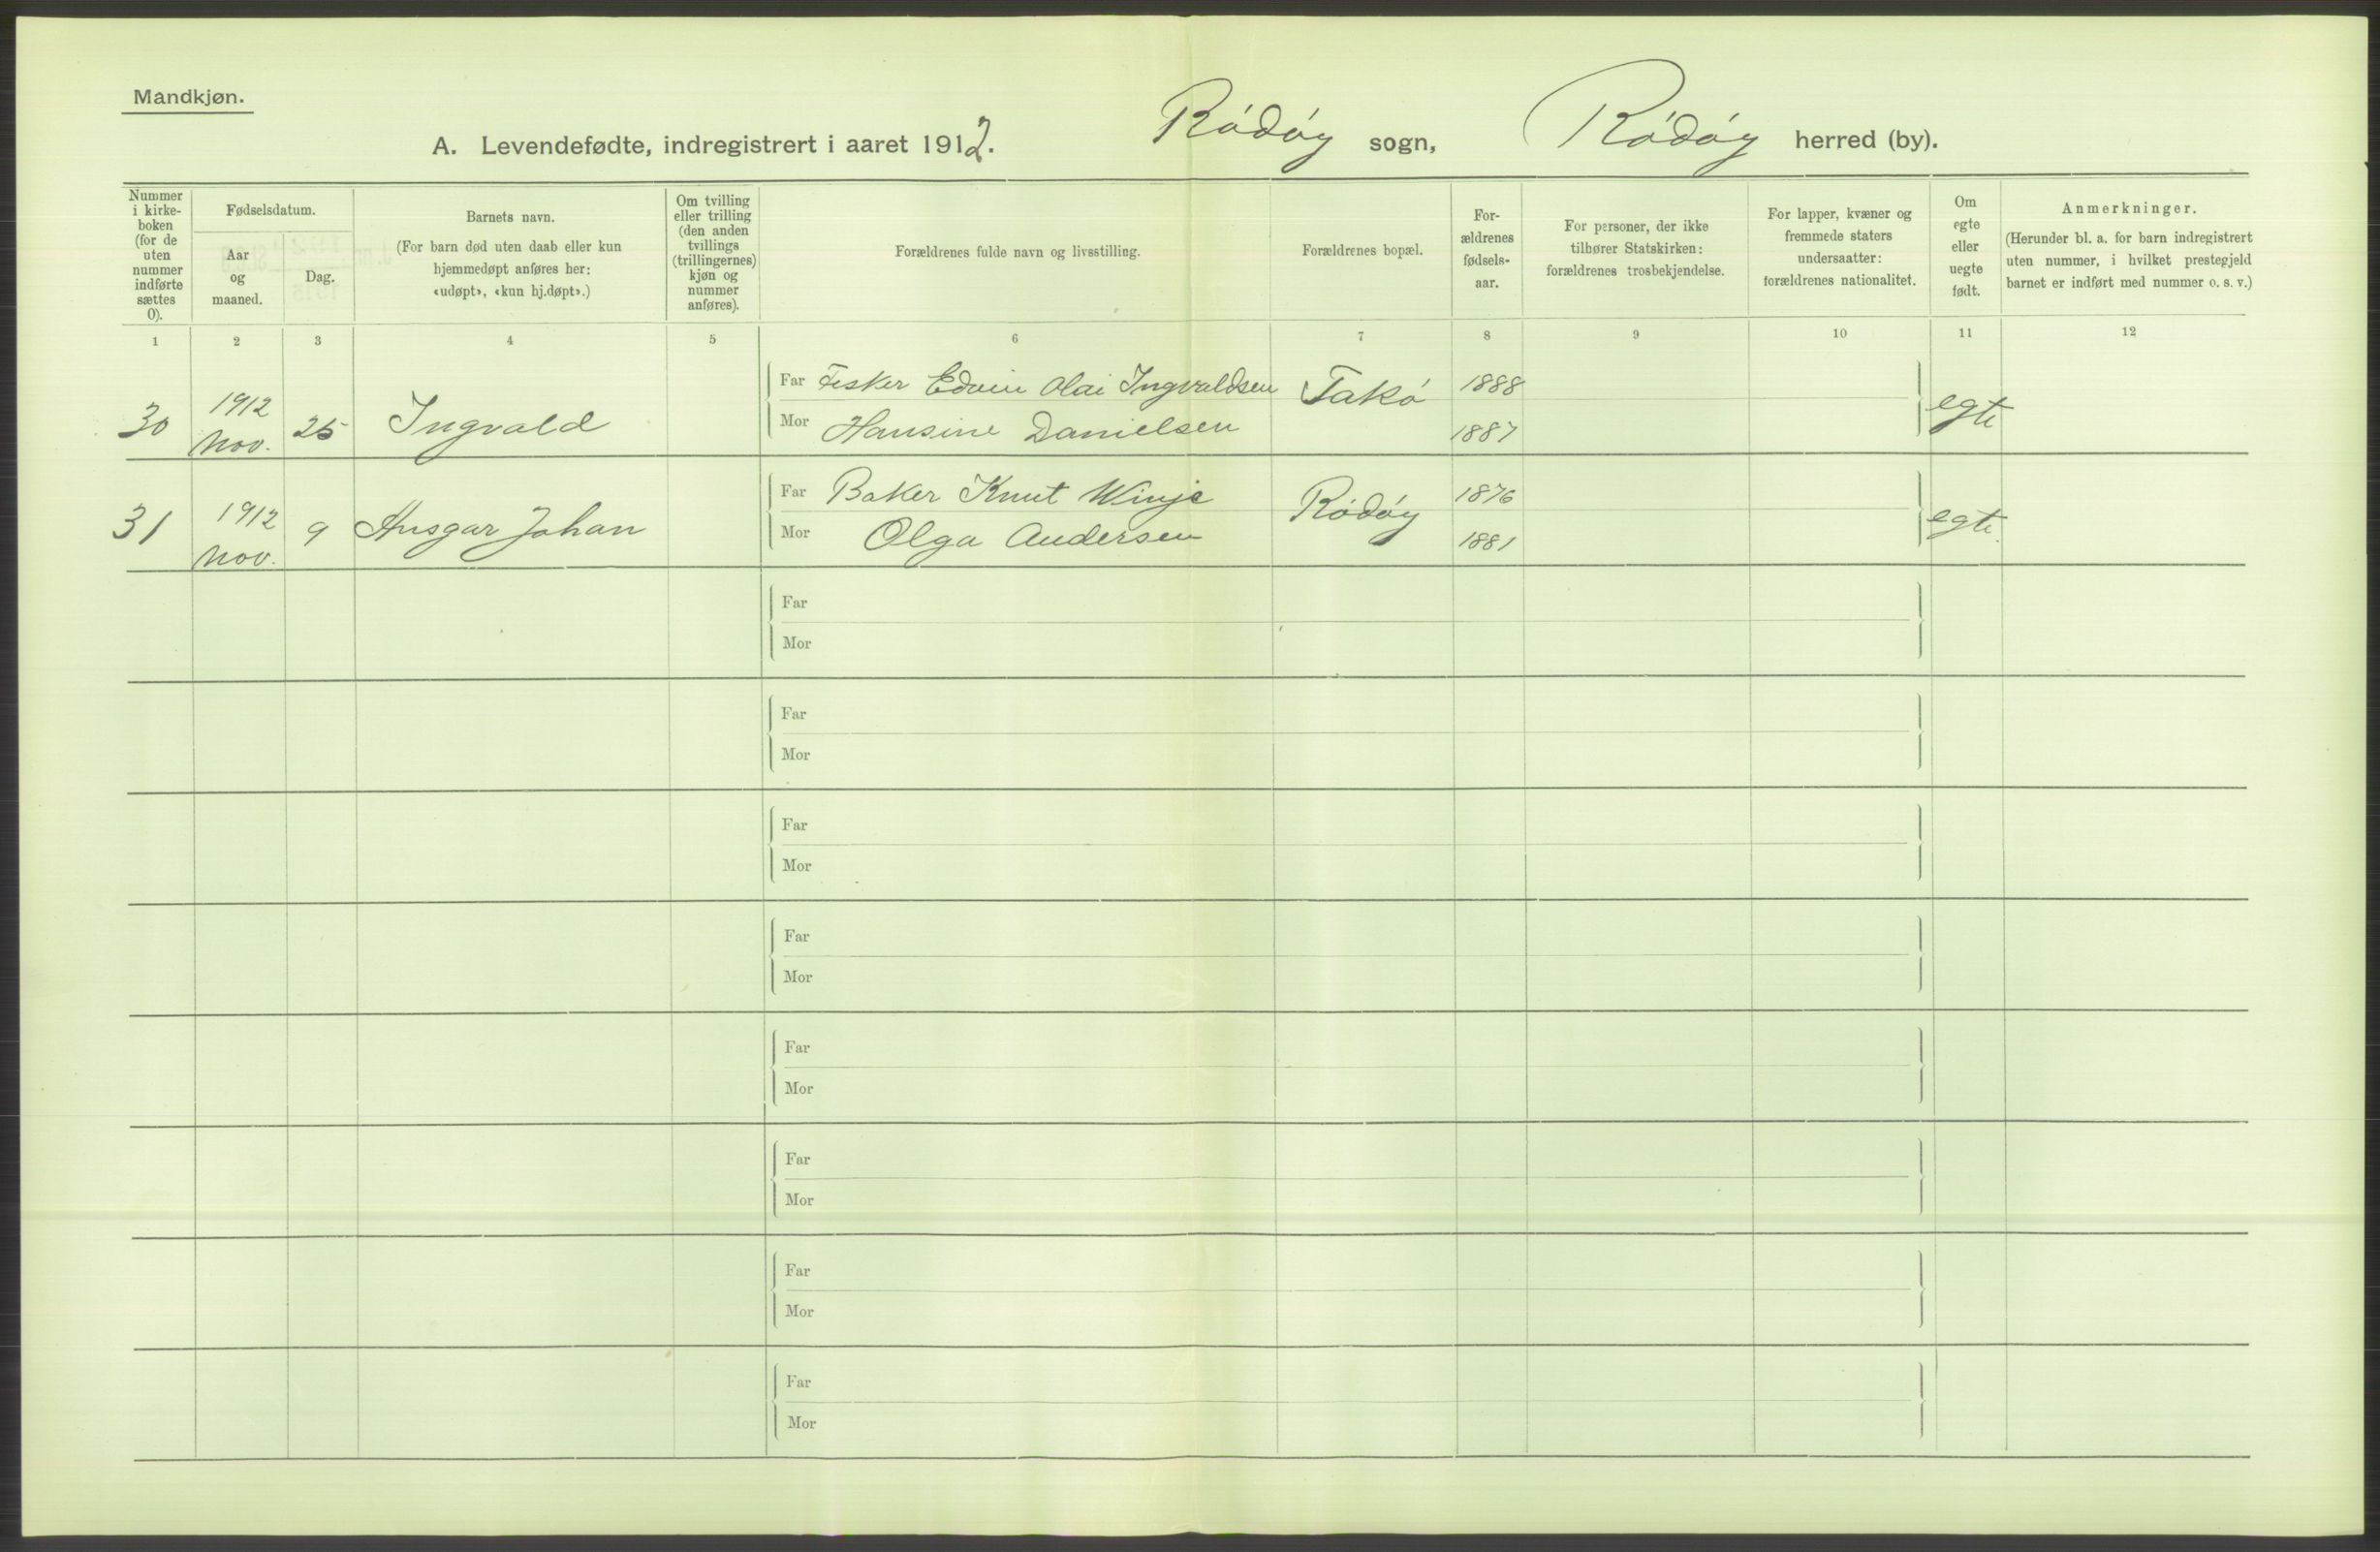 Mandkjøn.
A. Levendefødte, indregistrert i aaret 1912. Rödöy sogn, Rödöy herred (by).
Nummer i kirke-boken (for de uten nummer indførte sættes 0).
Fødselsdatum.
Aar og maaned.
Dag.
Barnets navn.
(For barn død uten daab eller kun hjemmedøpt anføres her: «udøpt», «kun hj.døpt».)
Om tvilling eller trilling (den anden tvillings (trillingernes) kjøn og nummer anføres).
Forældrenes fulde navn og livsstilling.
Forældrenes bopæl.
For-ældrenes fødsels-aar.
For personer, der ikke tilhører Statskirken: forældrenes trosbekjendelse.
For lapper, kvæner og fremmede staters undersaatter: forældrenes nationalitet.
Om egte eller uegte født.
Anmerkninger.
(Herunder bl. a. for barn indregistrert uten nummer, i hvilket prestegjeld barnet er indført med nummer o. s. v.)
1 2 3 4 5 6 7 8 9 10 11 12
30 1912 Nov. 25 Ingvald
Far Fisker Edvin Olai Ingvaldsen Takö 1888 egte
Mor Hansine Danielsen 1887
31 1912 Nov. 9 Ansgar Johan
Far Baker Knut Winje Rödöy 1876 egte
Mor Olga Andersen 1881
Far
Mor
Far
Mor
Far
Mor
Far
Mor
Far
Mor
Far
Mor
Far
Mor
Far
Mor